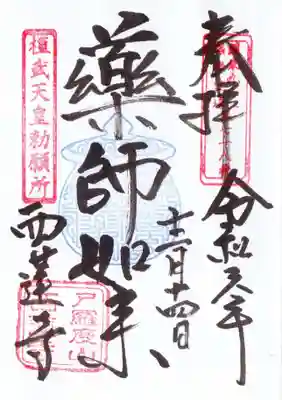 奉拝
令和六年
十二月十四日
薬師如来
桓武天皇勅願所
西蓮寺
戸羅度山